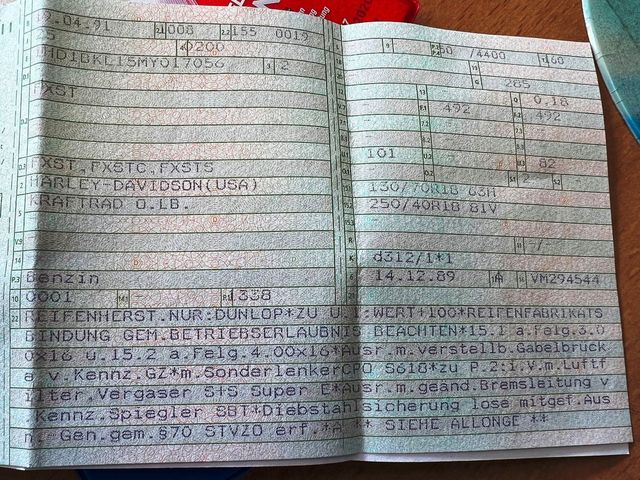 12.04.91 2.1 008 2.2 155 0019
0200
1HD1BKL15MY017056 3 2
FXST
FXST,FXSTC,FXSTS
HARLEY-DAVIDSON(USA)
KRAFTRAD O.LB.
Benzin
0001 338
50 /4400 160
285
0,18
492 492
101
82
2
130/70R18 63H
250/40R18 81V
-/-
K d312/1*1
6 14.12.89 A VM294544
22 REIFENHERST.NUR:DUNLOP*ZU U.1:WERT+100*REIFENFABRIKATS
BINDUNG GEM.BETRIEBSERLAUBNIS BEACHTEN*15.1 a.Felg.3.0
0x16 u.15.2 a.Felg.4.00x16*Ausr.m.verstellb.Gabelbrück
v.Kennz.GZ*m.SonderlenkerCPO S618*zu P.2:i.V.m.Luftf
ilter.Vergaser S+S Super E*Ausr.m.geänd.Bremsleitung v
.Kennz.Spiegler SBT*Diebstahlsicherung lose mitgef.Aus
n.-Gen.gem.§70 STVZO erf.*A ** SIEHE ALLONGE **